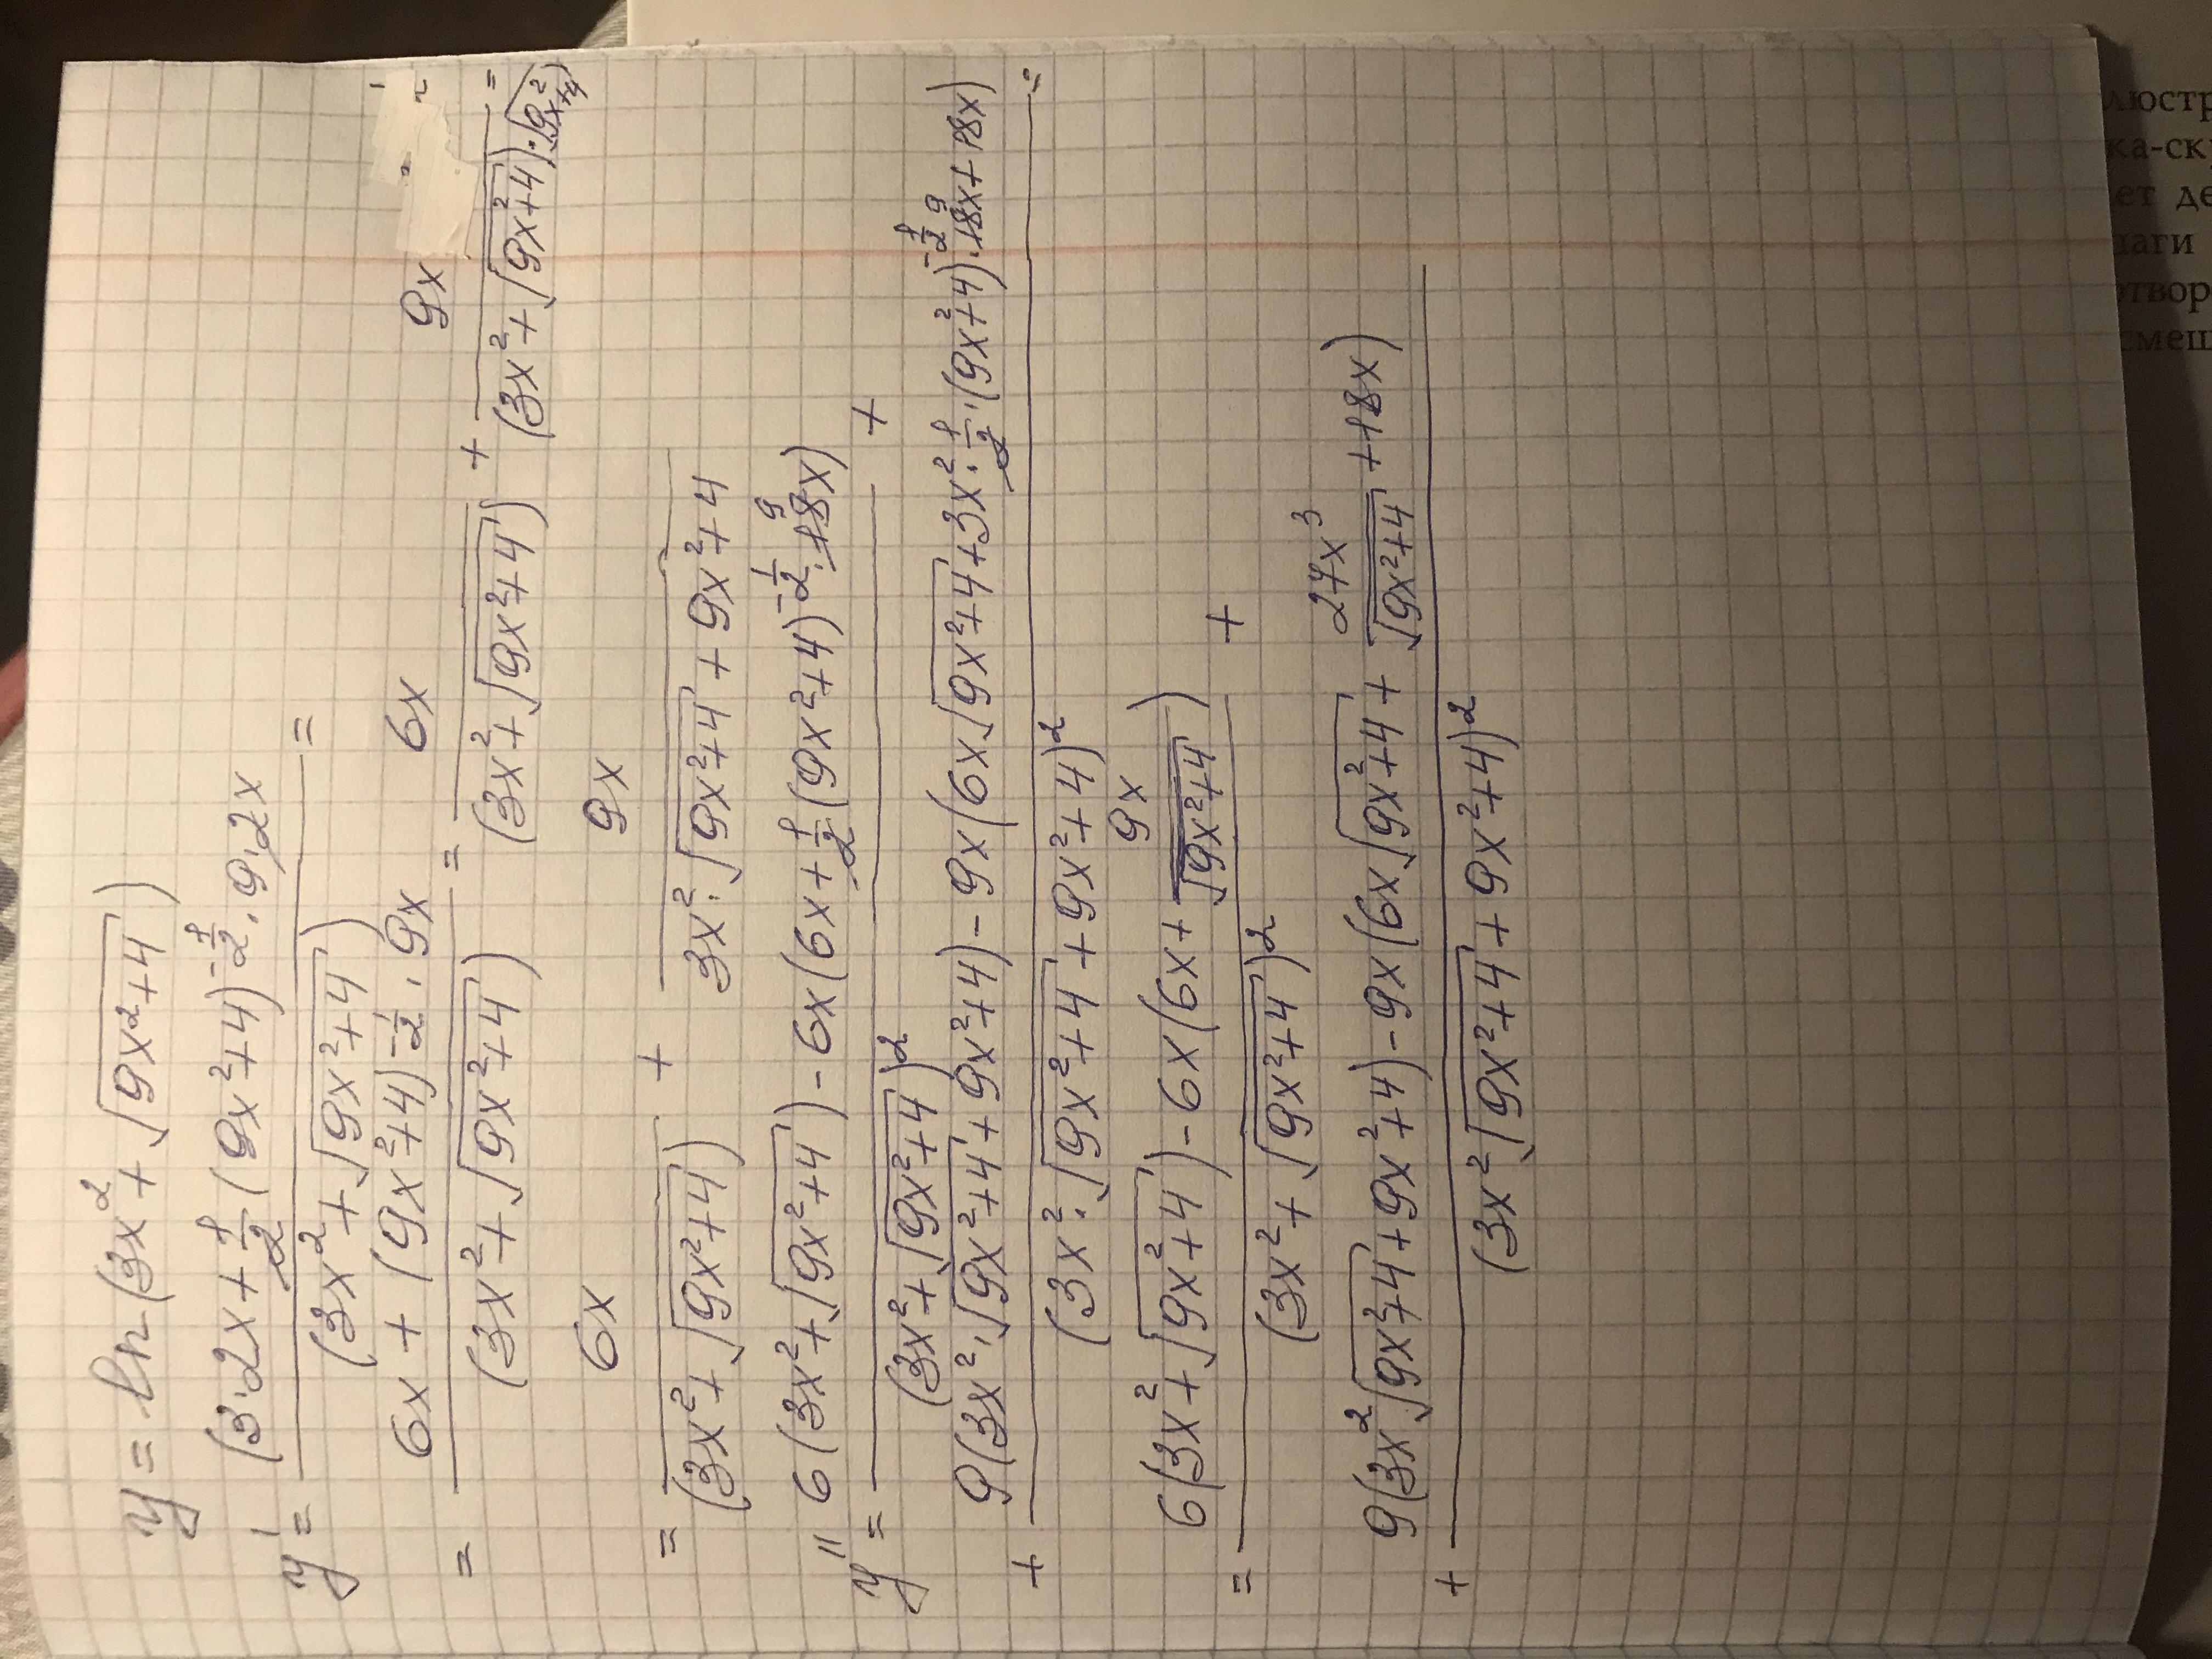 y = ln (3x² + √(9x²+4))
y' = (3·2x + 1/2 (9x²+4)^(-1/2) · 9·2x) / (3x² + √(9x²+4)) =
= (6x + (9x²+4)^(-1/2) · 9x) / (3x² + √(9x²+4)) = 6x / (3x² + √(9x²+4)) + 9x / ((3x² + √(9x²+4)) · √(9x²+4)) =
= 6x / (3x² + √(9x²+4)) + 9x / (3x² · √(9x²+4) + 9x²+4)
y'' = (6(3x² + √(9x²+4)) - 6x(6x + 1/2 (9x²+4)^(-1/2) · 18x)) / (3x² + √(9x²+4))² +
+ (9(3x² · √(9x²+4) + 9x²+4) - 9x(6x√(9x²+4) + 3x² · 1/2 · (9x²+4)^(-1/2) · 18x + 18x)) / (3x² · √(9x²+4) + 9x²+4)² =
= (6(3x² + √(9x²+4)) - 6x(6x + 9x/√(9x²+4))) / (3x² + √(9x²+4))² +
+ (9(3x²√(9x²+4) + 9x²+4) - 9x(6x√(9x²+4) + 27x³/√(9x²+4) + 18x)) / (3x²√(9x²+4) + 9x²+4)²
люстр
ка-ск
ет де
лаги
отвор
смеш